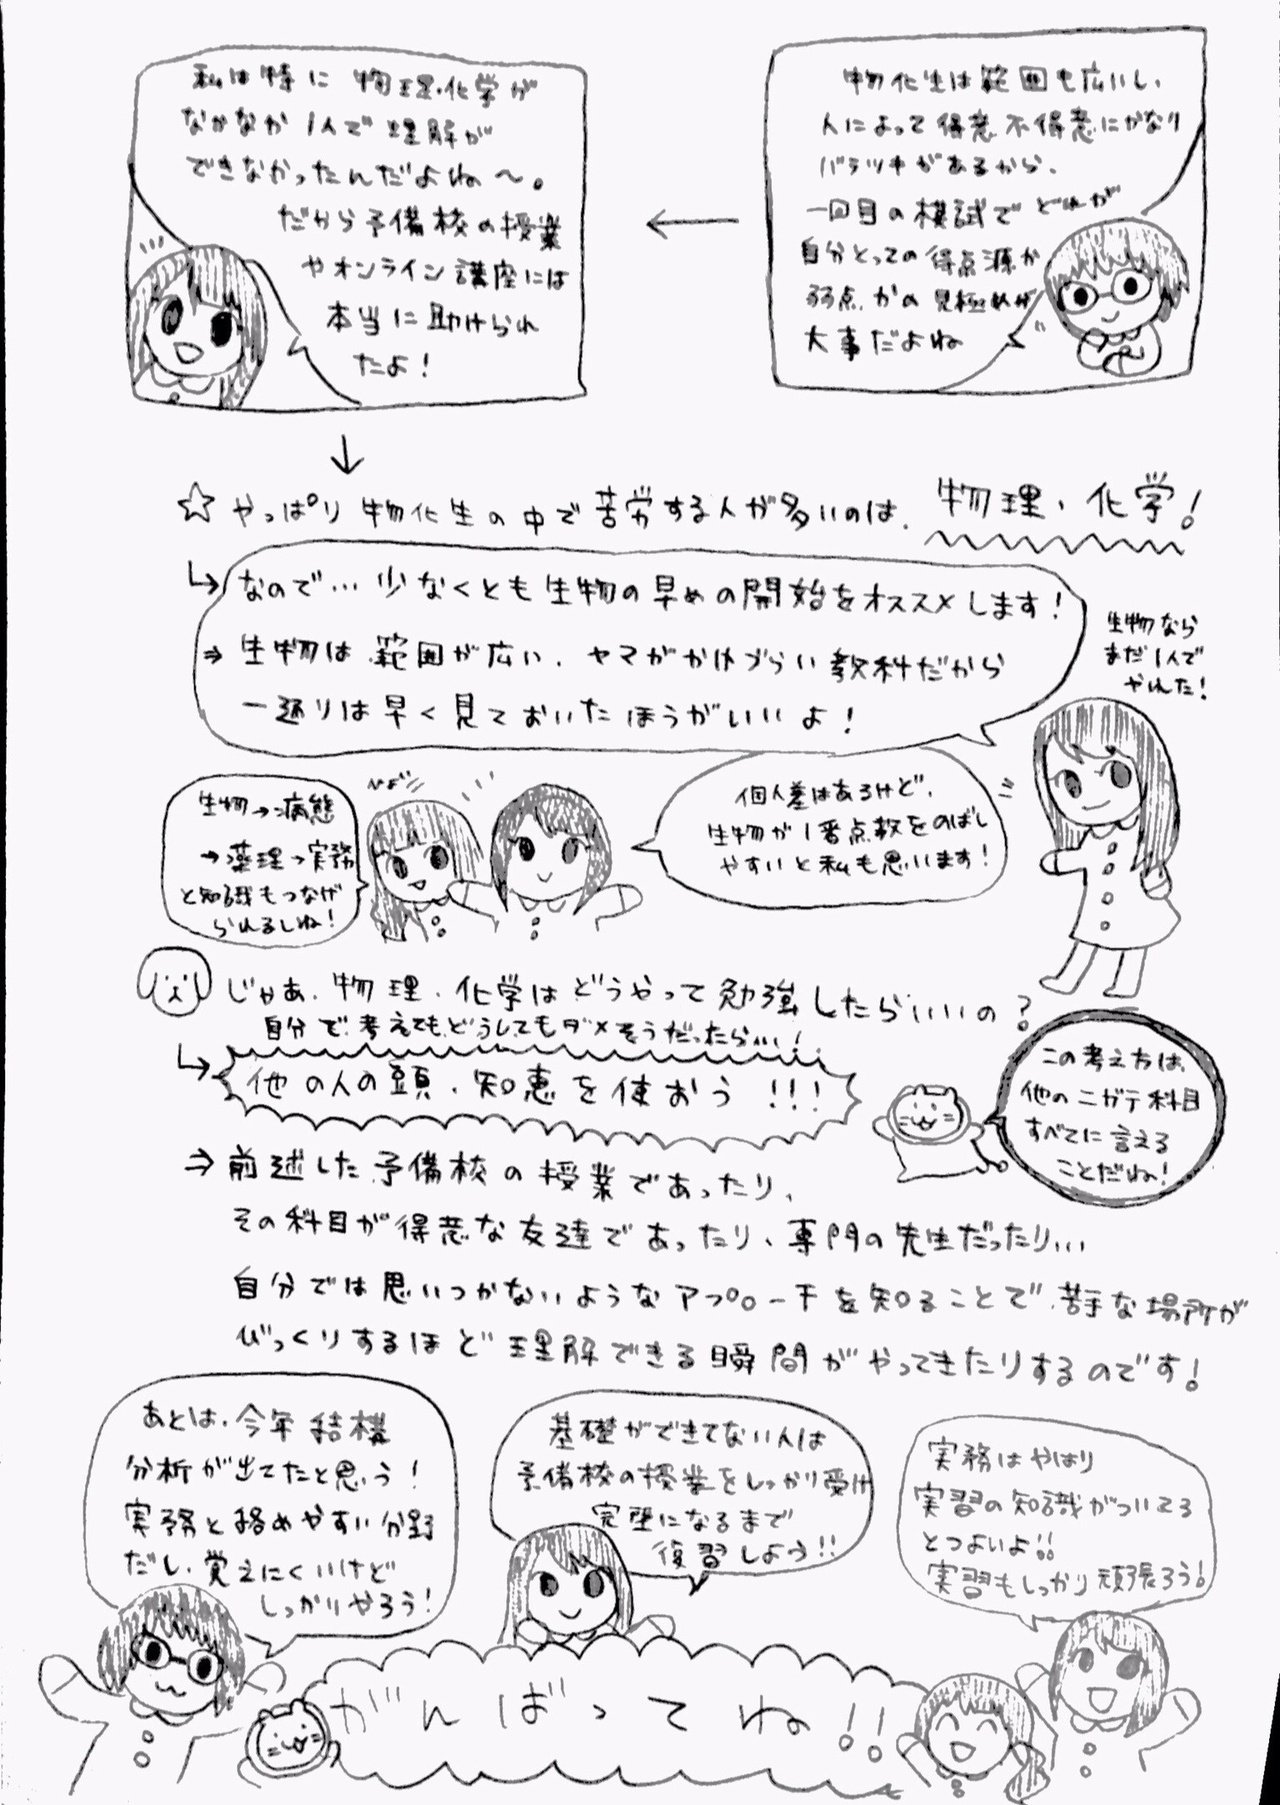 物化生は範囲も広いし、
人によって得意不得意にかなり
バラツキがあるから、
一回目の模試でどれが
自分とっての得点源か
弱点かの見極めが
大事だよね
私は特に物理・化学が
なかなか1人で理解が
できなかったんだよね〜。
だから予備校の授業
やオンライン講座には
本当に助けられ
たよ!
☆やっぱり物化生の中で苦労する人が多いのは、物理、化学!
なので…少なくとも生物の早めの開始をオススメします!
⇒生物は範囲が広い、ヤマがかけづらい教科だから
一通りは早く見ておいたほうがいいよ!
生物なら
まだ1人で
やれた!
個人差はあるけど、
生物が1番点数をのばし
やすいと私も思います!
生物→病態
→薬理→実務
と知識もつなげ
られるしね!
じゃあ、物理、化学はどうやって勉強したらいいの?
自分で考えてもどうしてもダメそうだったら…!
他の人の頭、知恵を使おう!!!
この考え方は、
他のニガテ科目
すべてに言える
ことだね!
⇒前述した予備校の授業であったり、
その科目が得意な友達であったり、専門の先生だったり…
自分では思いつかないようなアプローチを知ることで、苦手な場所が
びっくりするほど理解できる瞬間がやってきたりするのです!
あとは、今年結構
分析が出てたと思う!
実務と絡めやすい分野
だし、覚えにくいけど
しっかりやろう!
基礎ができてない人は
予備校の授業をしっかり受け
完璧になるまで
復習しよう!!
実務はやはり
実習の知識がついてる
とつよいよ!!
実習もしっかり頑張ろう!
がんばってね!!